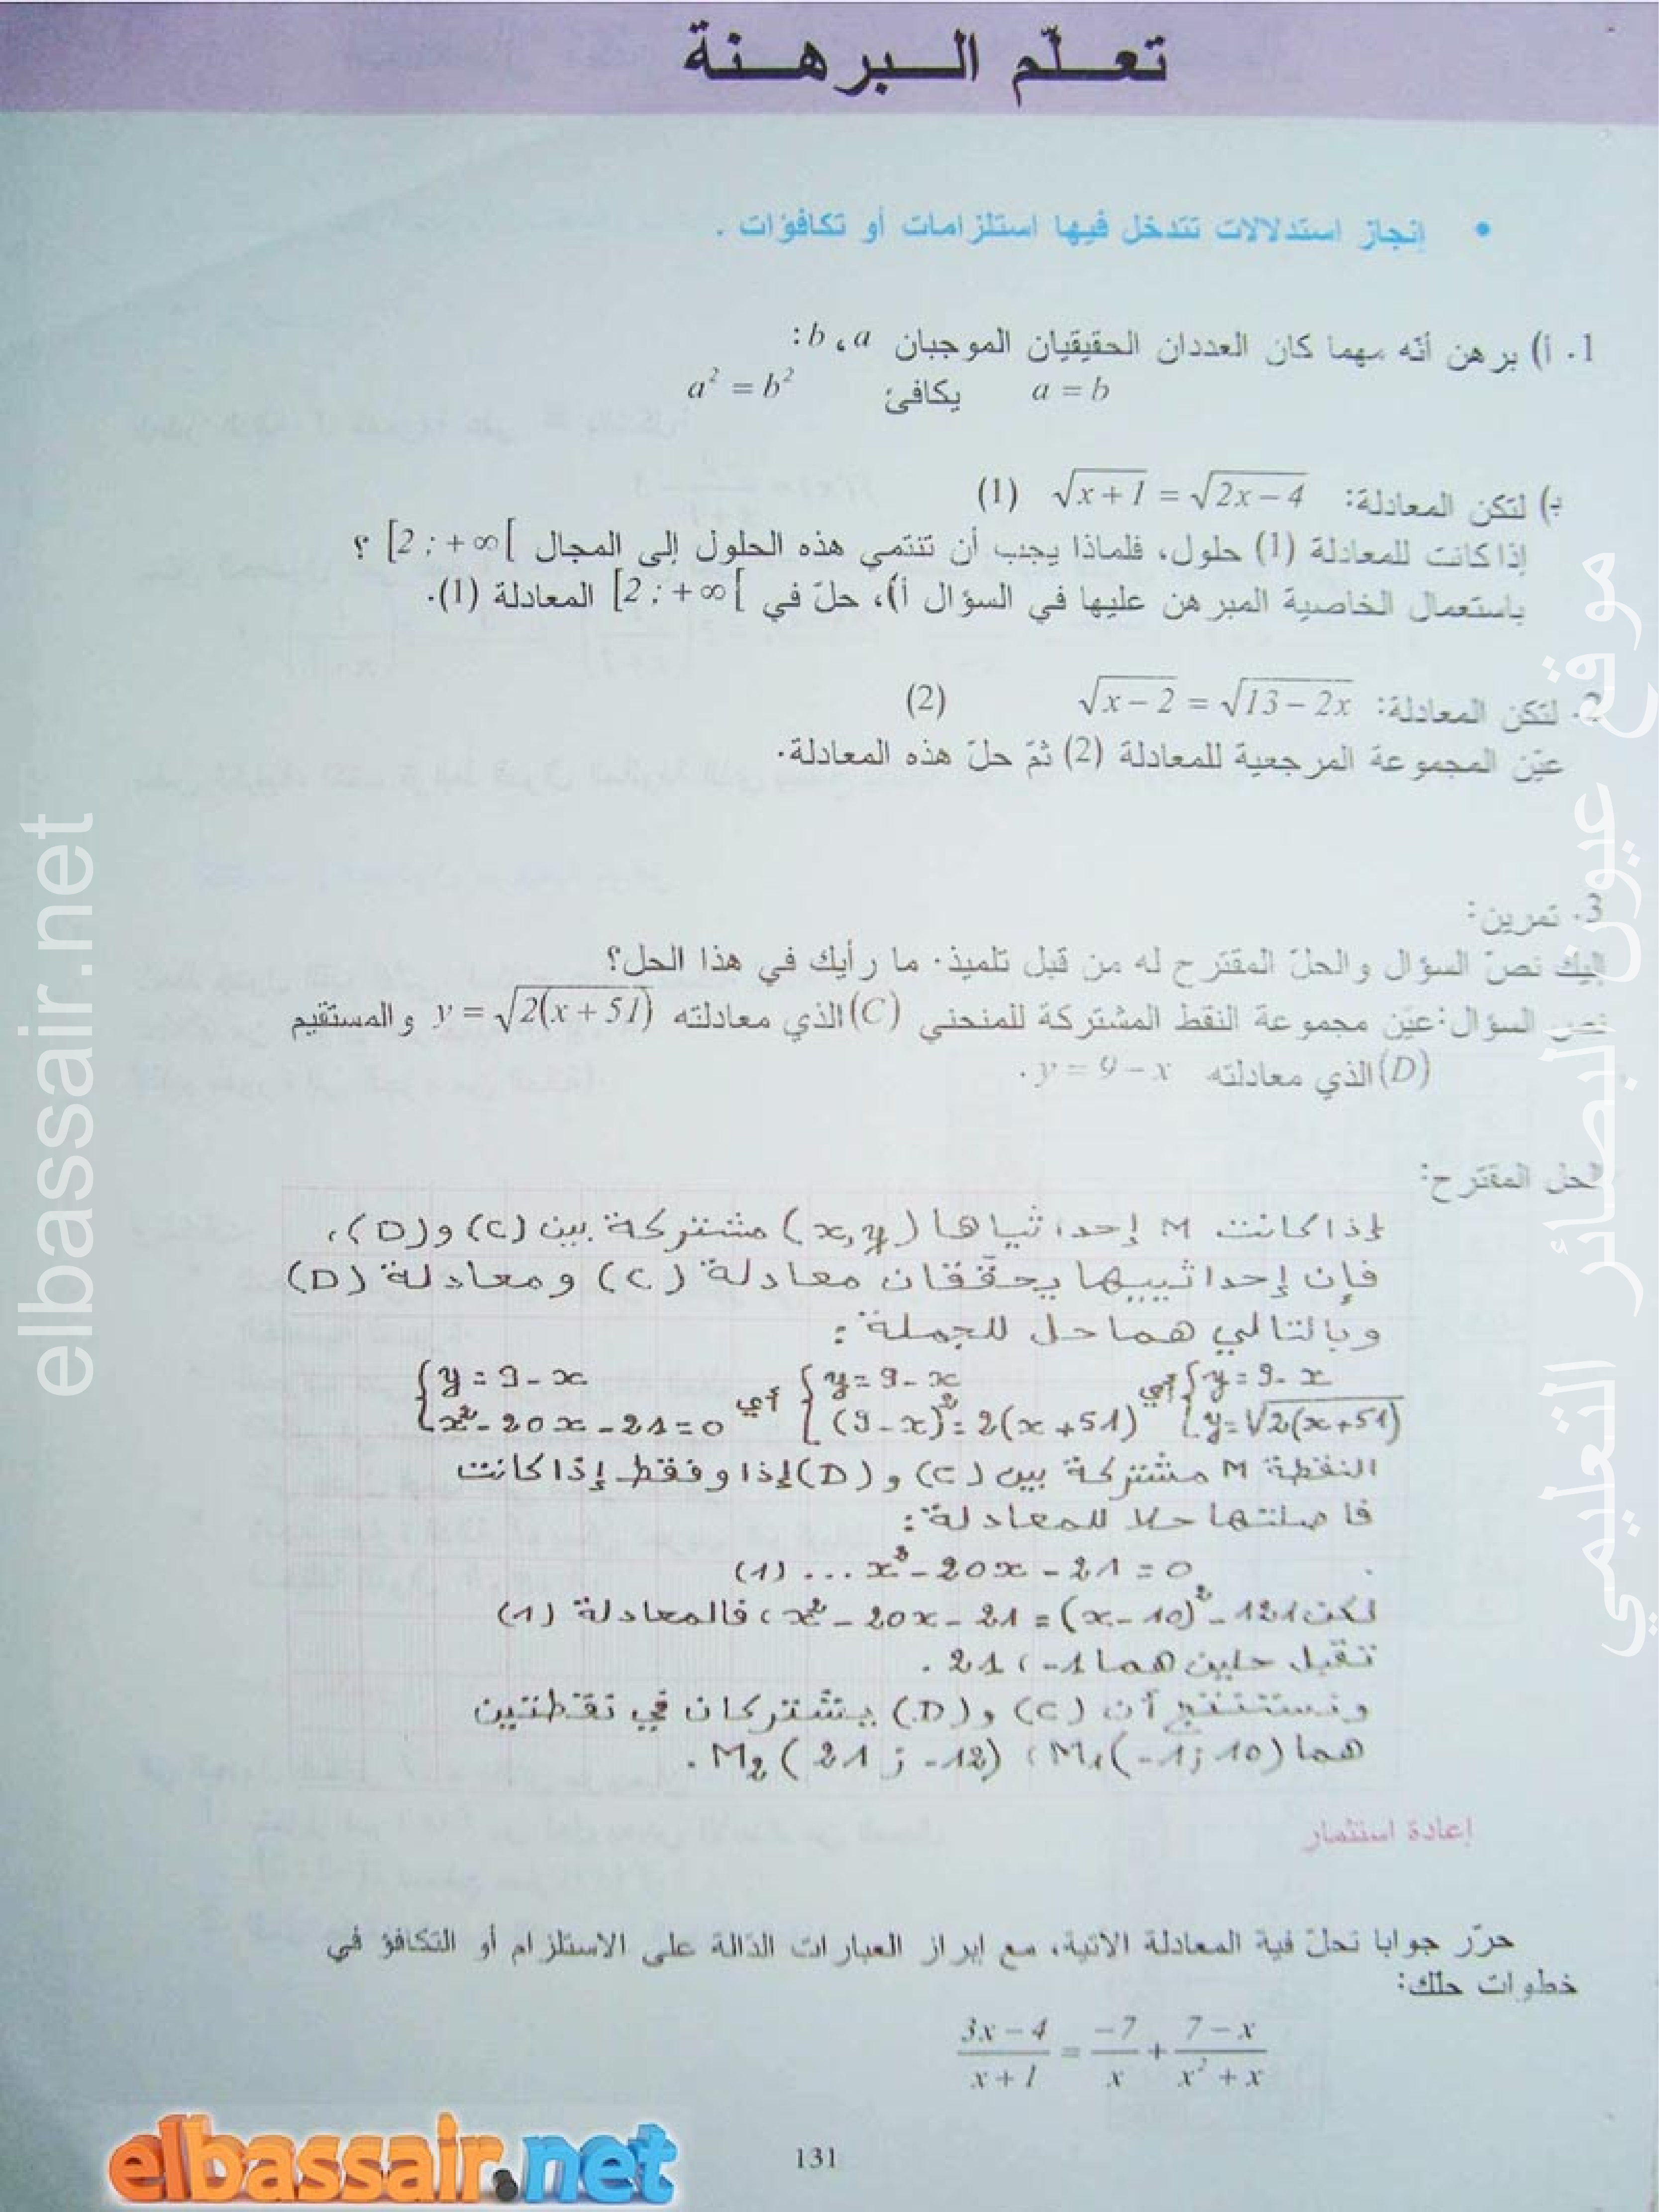 تعلّم البرهنة
• إنجاز استدلالات تتدخل فيها استلزامات أو تكافؤات .
1. أ) برهن أنّه مهما كان العددان الحقيقيان الموجبان a، b:
a = b يكافئ a² = b²
ب) لتكن المعادلة: √(x+1) = √(2x−4) (1)
إذا كانت للمعادلة (1) حلول، فلماذا يجب أن تنتمي هذه الحلول إلى المجال [2 ; +∞[ ؟
باستعمال الخاصية المبرهن عليها في السؤال أ)، حلّ في [2 ; +∞[ المعادلة (1).
2. لتكن المعادلة: √(x−2) = √(13−2x) (2)
عيّن المجموعة المرجعية للمعادلة (2) ثمّ حلّ هذه المعادلة.
3. تمرين:
إليك نصّ السؤال والحلّ المقترح له من قبل تلميذ. ما رأيك في هذا الحل؟
نص السؤال: عيّن مجموعة النقط المشتركة للمنحني (C) الذي معادلته y = √(2(x+51)) والمستقيم
(D) الذي معادلته y = 9 − x .
الحل المقترح:
إذا كانت M إحداثياها (x,y) مشتركة بين (C) و(D)،
فإن إحداثييها يحققان معادلة (C) ومعادلة (D)
وبالتالي هما حل للجملة :
{y = 9 - x ; y = √(2(x+51)) أي {y = 9 - x ; (9-x)² = 2(x+51) أي {y = 9 - x ; x² - 20x - 21 = 0
النقطة M مشتركة بين (C) و (D) إذا وفقط إذا كانت
فاصلتها حلا للمعادلة :
x² - 20x - 21 = 0 ... (1)
لكن x² - 20x - 21 = (x - 10)² - 121 ، فالمعادلة (1)
تقبل حلين هما -1 ، 21 .
ونستنتج أن (C) و(D) يشتركان في نقطتين
هما M₁(-1 ; 10) ، M₂(21 ; -12) .
إعادة استثمار
حرّر جوابا تحلّ فية المعادلة الآتية، مع إبراز العبارات الدّالة على الاستلزام أو التكافؤ في
خطوات حلك:
(3x − 4)/(x + 1) = −7/x + (7 − x)/(x² + x)
131
elbassair.net
elbassair.net
موقع عيون البصائر التعليمي